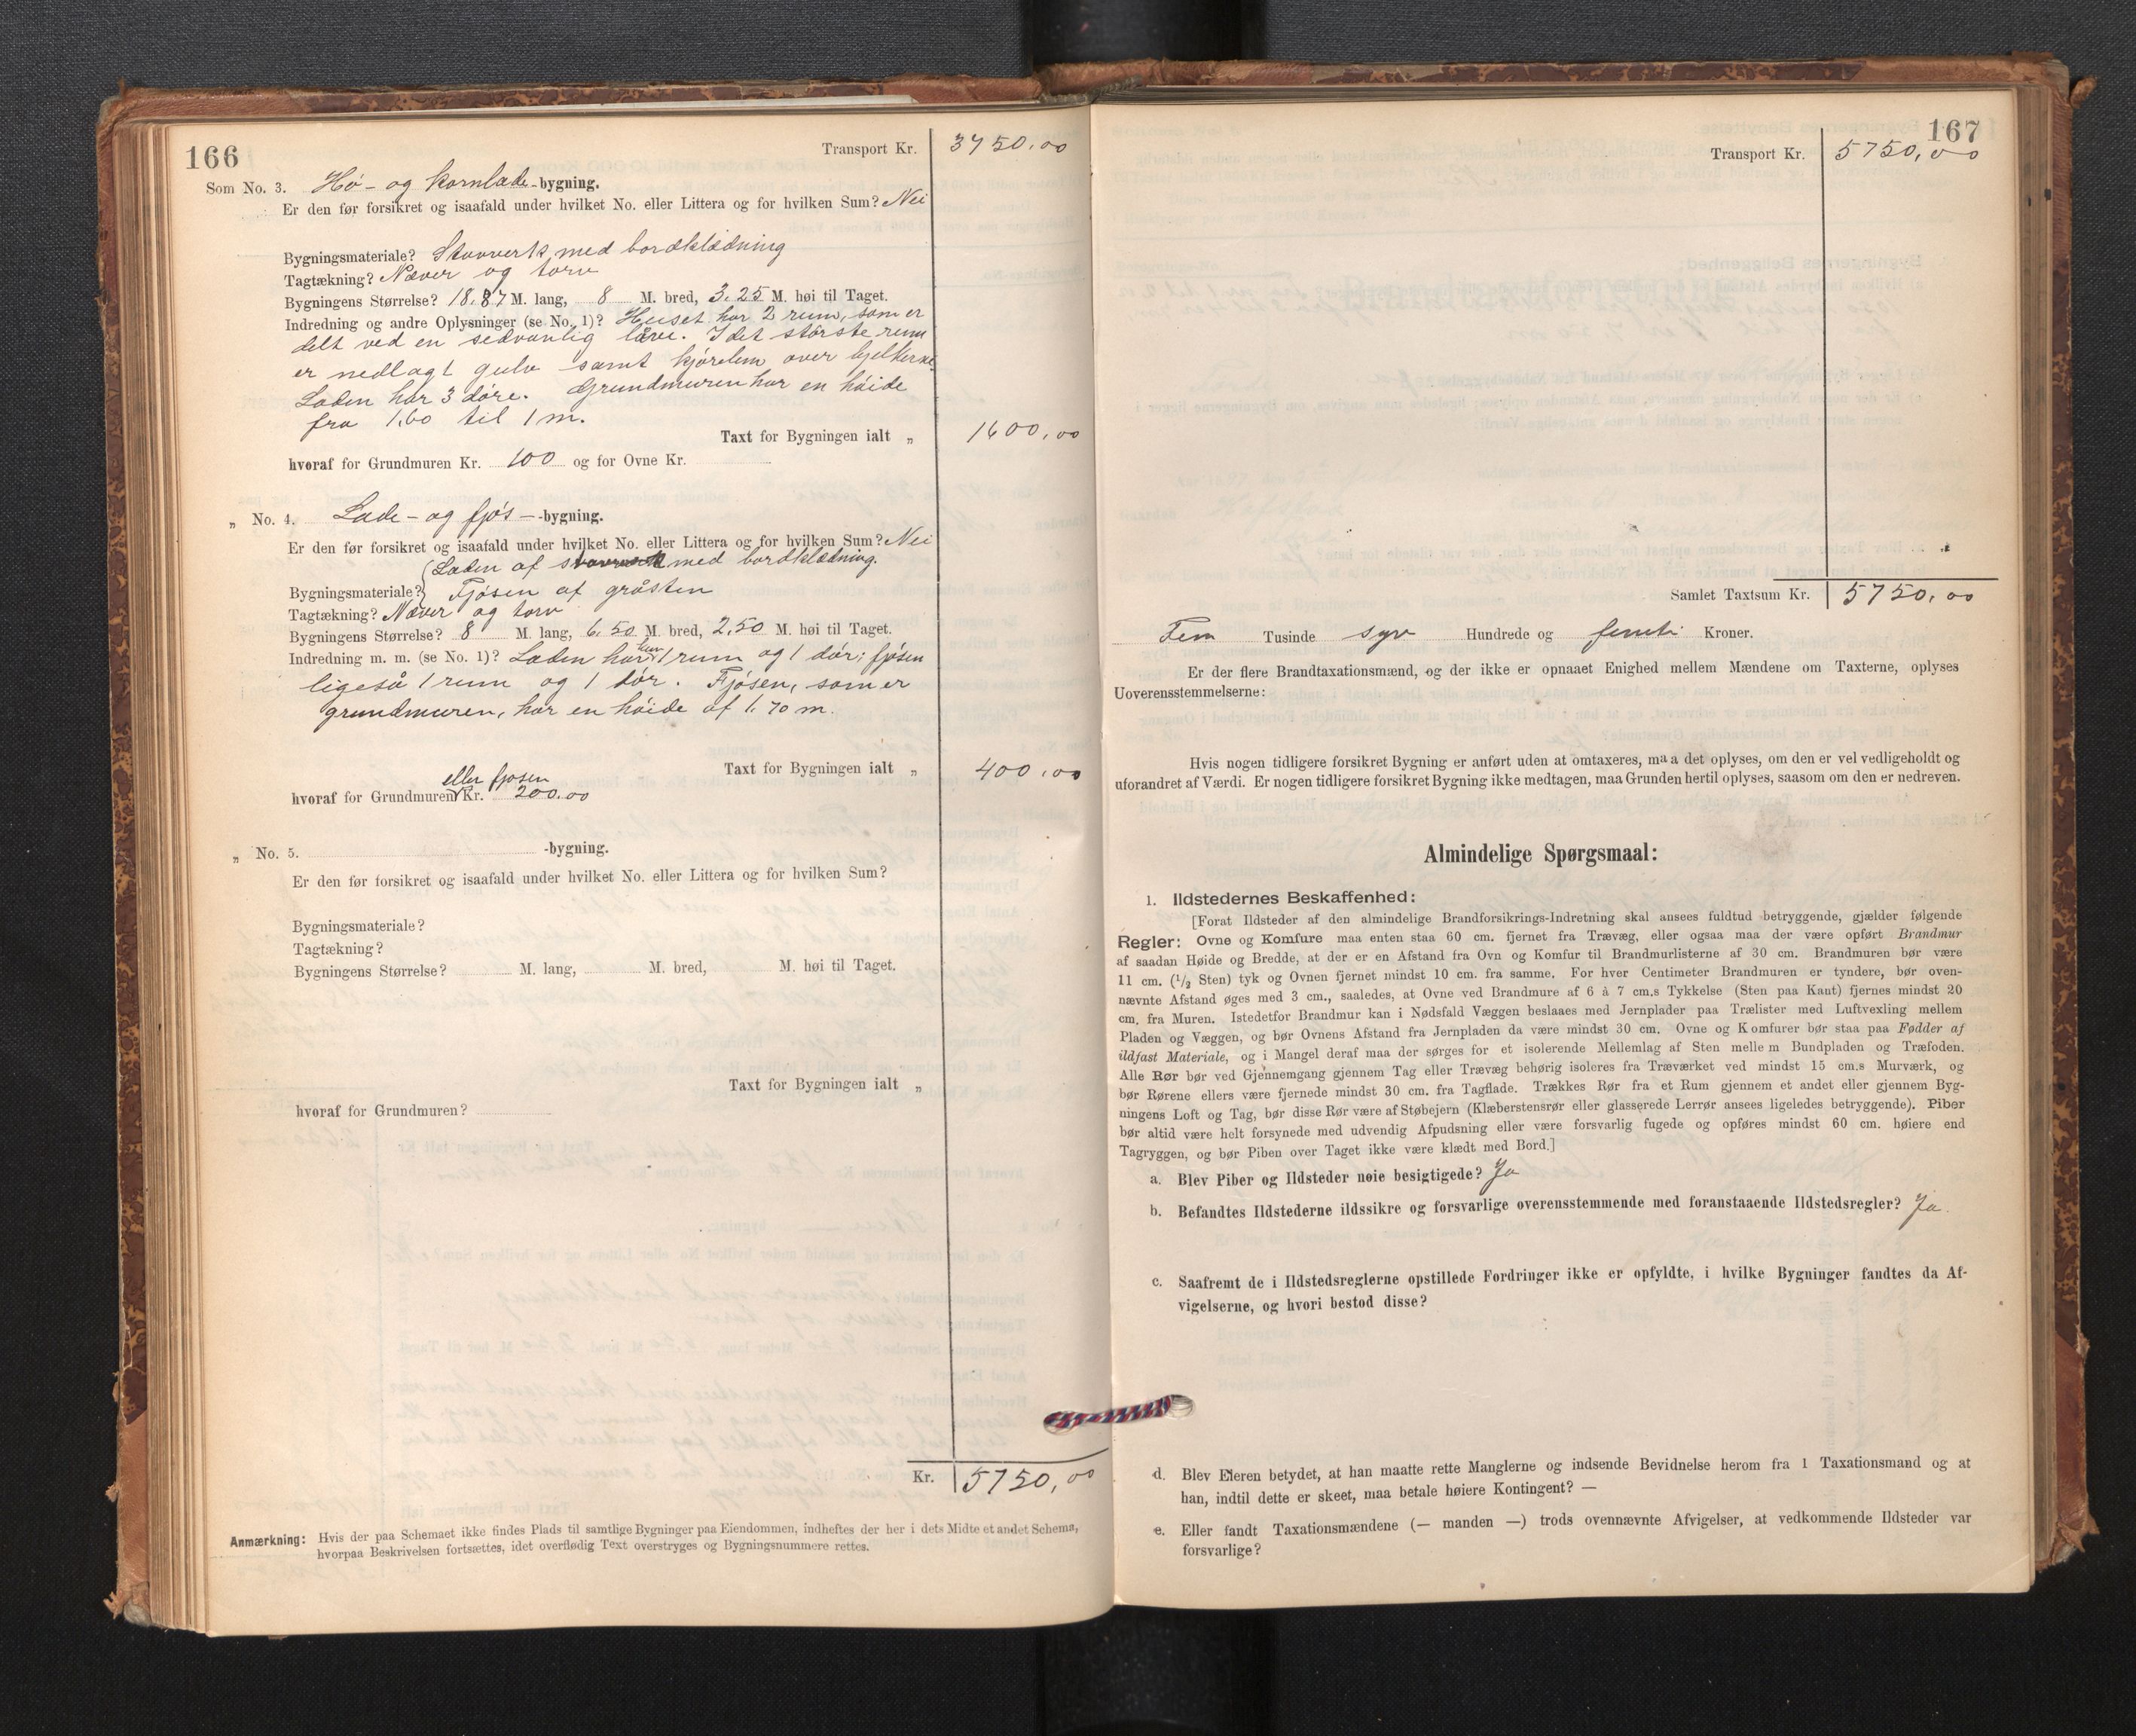 166
Transport Kr. 3750,00
Som No. 3. Hø- og kornlade-bygning.
Er den før forsikret og isaafald under hvilket No. eller Littera og for hvilken Sum? Nei
Bygningsmateriale? Stavverk med bordklædning
Tagtækning? Næver og torv
Bygningens Størrelse? 18.87 M. lang, 8 M. bred, 3.25 M. høi til Taget.
Indredning og andre Oplysninger (se No. 1)? Huset har 2 rum, som er
delt ved en sedvanlig låve. I det største rum
er nedlagt gulv samt kjørelem over bjelkerne.
Laden har 3 døre. Grundmuren har en høide
fra 1.60 til 1 m.
Taxt for Bygningen ialt „ 1600,00
hvoraf for Grundmuren Kr. 100 og for Ovne Kr.
„ No. 4. Lade- og fjøs-bygning.
Er den før forsikret og isaafald under hvilket No. eller Littera og for hvilken Sum? Nei
Laden af stavverk med bordklædning.
Bygningsmateriale? Fjøsen af gråsten
Tagtækning? Næver og torv
Bygningens Størrelse? 8 M. lang, 6.50 M. bred, 2.50 M. høi til Taget.
Indredning m. m. (se No. 1)? Laden har kun 1 rum og 1 dør; fjøsen
ligeså 1 rum og 1 dør. Fjøsen, som er
grundmuren, har en høide af 1.70 m.
Taxt for Bygningen ialt „ 400,00
eller fjøsen
hvoraf for Grundmuren Kr. 200.00
„ No. 5. -bygning.
Er den før forsikret og isaafald under hvilket No. eller Littera og for hvilken Sum?
Bygningsmateriale?
Tagtækning?
Bygningens Størrelse? M. lang, M. bred, M. høi til Taget.
Taxt for Bygningen ialt „
hvoraf for Grundmuren?
Kr. 5750,00
Anmærkning: Hvis der paa Schemaet ikke findes Plads til samtlige Bygninger paa Eiendommen, indheftes der her i dets Midte et andet Schema,
hvorpaa Beskrivelsen fortsættes, idet overflødig Text overstryges og Bygningsnummere rettes.
167
Transport Kr. 5750,00
Samlet Taxtsum Kr. 5750,00
Fem Tusinde syv Hundrede og femti Kroner.
Er der flere Brandtaxationsmænd, og der ikke er opnaaet Enighed mellem Mændene om Taxterne, oplyses
Uoverensstemmelserne:
Hvis nogen tidligere forsikret Bygning er anført uden at omtaxeres, maa det oplyses, om den er vel vedligeholdt og
uforandret af Værdi. Er nogen tidligere forsikret Bygning ikke medtagen, maa Grunden hertil oplyses, saasom om den er nedreven.
Almindelige Spørgsmaal:
1. Ildstedernes Beskaffenhed:
[Forat Ildsteder af den almindelige Brandforsikrings-Indretning skal ansees fuldtud betryggende, gjælder følgende
Regler: Ovne og Komfure maa enten staa 60 cm. fjernet fra Trævæg, eller ogsaa maa der være opført Brandmur
af saadan Høide og Bredde, at der er en Afstand fra Ovn og Komfur til Brandmurlisterne af 30 cm. Brandmuren bør være
11 cm. (1/2 Sten) tyk og Ovnen fjernet mindst 10 cm. fra samme. For hver Centimeter Brandmuren er tyndere, bør oven-
nævnte Afstand øges med 3 cm., saaledes, at Ovne ved Brandmure af 6 à 7 cm.s Tykkelse (Sten paa Kant) fjernes mindst 20
cm. fra Muren. Istedetfor Brandmur kan i Nødsfald Væggen beslaaes med Jernplader paa Trælister med Luftvexling mellem
Pladen og Væggen, og bør Ovnens Afstand fra Jernpladen da være mindst 30 cm. Ovne og Komfurer bør staa paa Fødder af
ildfast Materiale, og i Mangel deraf maa der sørges for et isolerende Mellemlag af Sten mellem Bundpladen og Træfoden.
Alle Rør bør ved Gjennemgang gjennem Tag eller Trævæg behørig isoleres fra Træværket ved mindst 15 cm.s Murværk, og
bør Rørene ellers være fjernede mindst 30 cm. fra Tagflade. Trækkes Rør fra et Rum gjennem et andet eller gjennem Byg-
ningens Loft og Tag, bør disse Rør være af Støbejern (Klæberstensrør eller glasserede Lerrør ansees ligeledes betryggende). Piber
bør altid være helt forsynede med udvendig Afpudsning eller være forsvarlig fugede og opføres mindst 60 cm. høiere end
Tagryggen, og bør Piben over Taget ikke være klædt med Bord.]
a. Blev Piber og Ildsteder nøie besigtigede? Ja
b. Befandtes Ildstederne ildssikre og forsvarlige overensstemmende med foranstaaende Ildstedsregler? Ja.
c. Saafremt de i Ildstedsreglerne opstillede Fordringer ikke er opfyldte, i hvilke Bygninger fandtes da Af-
vigelserne, og hvori bestod disse?
d. Blev Eieren betydet, at han maatte rette Manglerne og indsende Bevidnelse herom fra 1 Taxationsmand og at
han, indtil dette er skeet, maa betale høiere Kontingent? —
e. Eller fandt Taxationsmændene (— manden —) trods ovennævnte Afvigelser, at vedkommende Ildsteder var
forsvarlige?